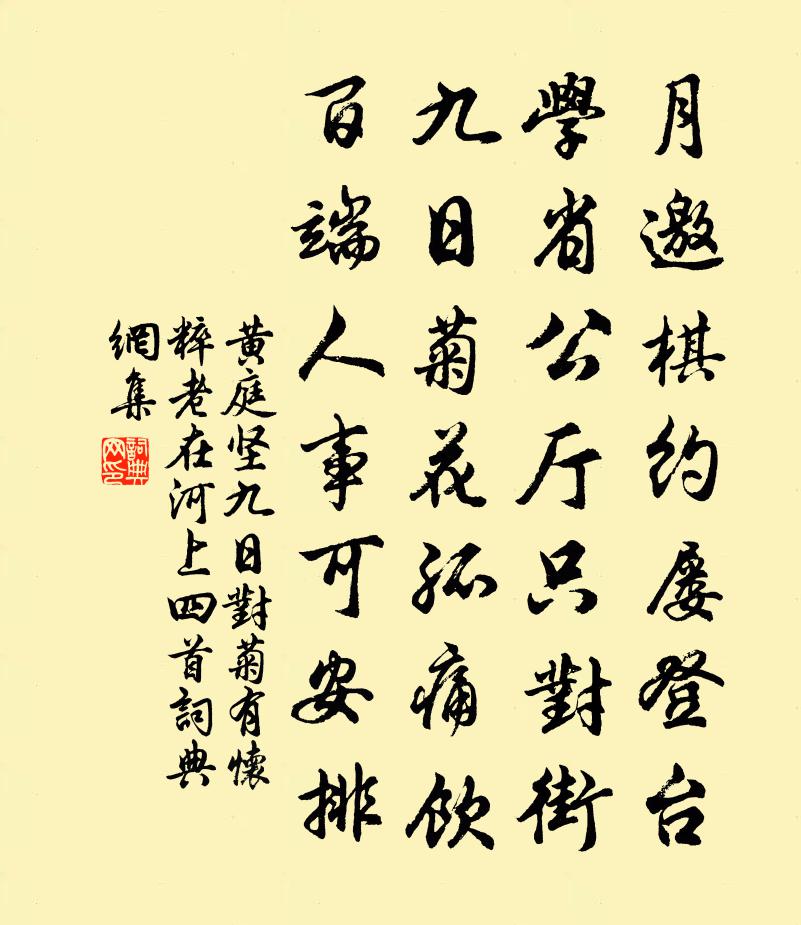 月邀棋約屡登台
學省公厅只對街
九日菊花孤痛飲
百端人事可安排
黄庭坚九日對菊有懷
粹老在河上四首詞典
網集
詞典
网印